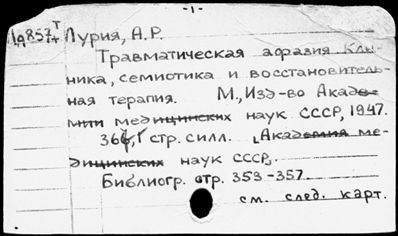 -1-
Лурия, А.Р.
Травматическая афазия Кли-
ника, семиотика и восстановитель-
ная терапия. М., Изд-во Акаде-
мии медицинских наук СССР, 1947.
стр. силл. Академия ме-
дицинских наук СССР.
Библиогр. стр. 353-357.
см. след. карт.